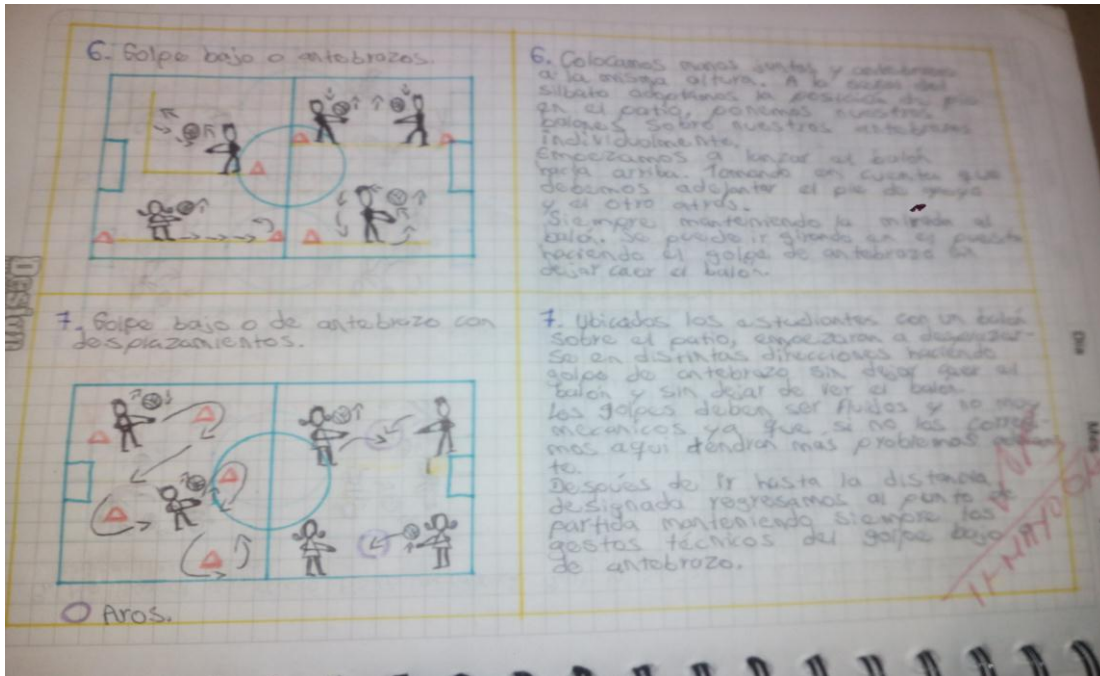 6. Golpe bajo o antebrazos.
6. Colocamos manos juntas y antebrazos
a la misma altura. A la del
silbato adoptamos la posición de pie
en el patio, ponemos nuestros
balones sobre nuestros antebrazos
individualmente.
Empezamos a lanzar el balón
hacia arriba. Tomando en cuenta que
debemos adelantar el pie de apoyo
y el otro atrás.
Siempre manteniendo la mirada al
balón. Se puede ir girando en el puesto
haciendo el golpe de antebrazo sin
dejar caer el balón.
7. Golpe bajo o de antebrazo con
desplazamientos.
Aros.
7. Ubicados los estudiantes con un balón
sobre el patio, empezaran a desplazar-
se en distintas direcciones haciendo
golpe de antebrazo sin dejar caer el
balón y sin dejar de ver el balón.
Los golpes deben ser fluidos y no muy
mecanicos ya que si no los corregi-
mos aqui tendran mas problemas
te.
Después de ir hasta la distancia
designada regresamos al punto de
partida manteniendo siempre los
gestos técnicos del golpe bajo
de antebrazo.
Design
Día
Mes